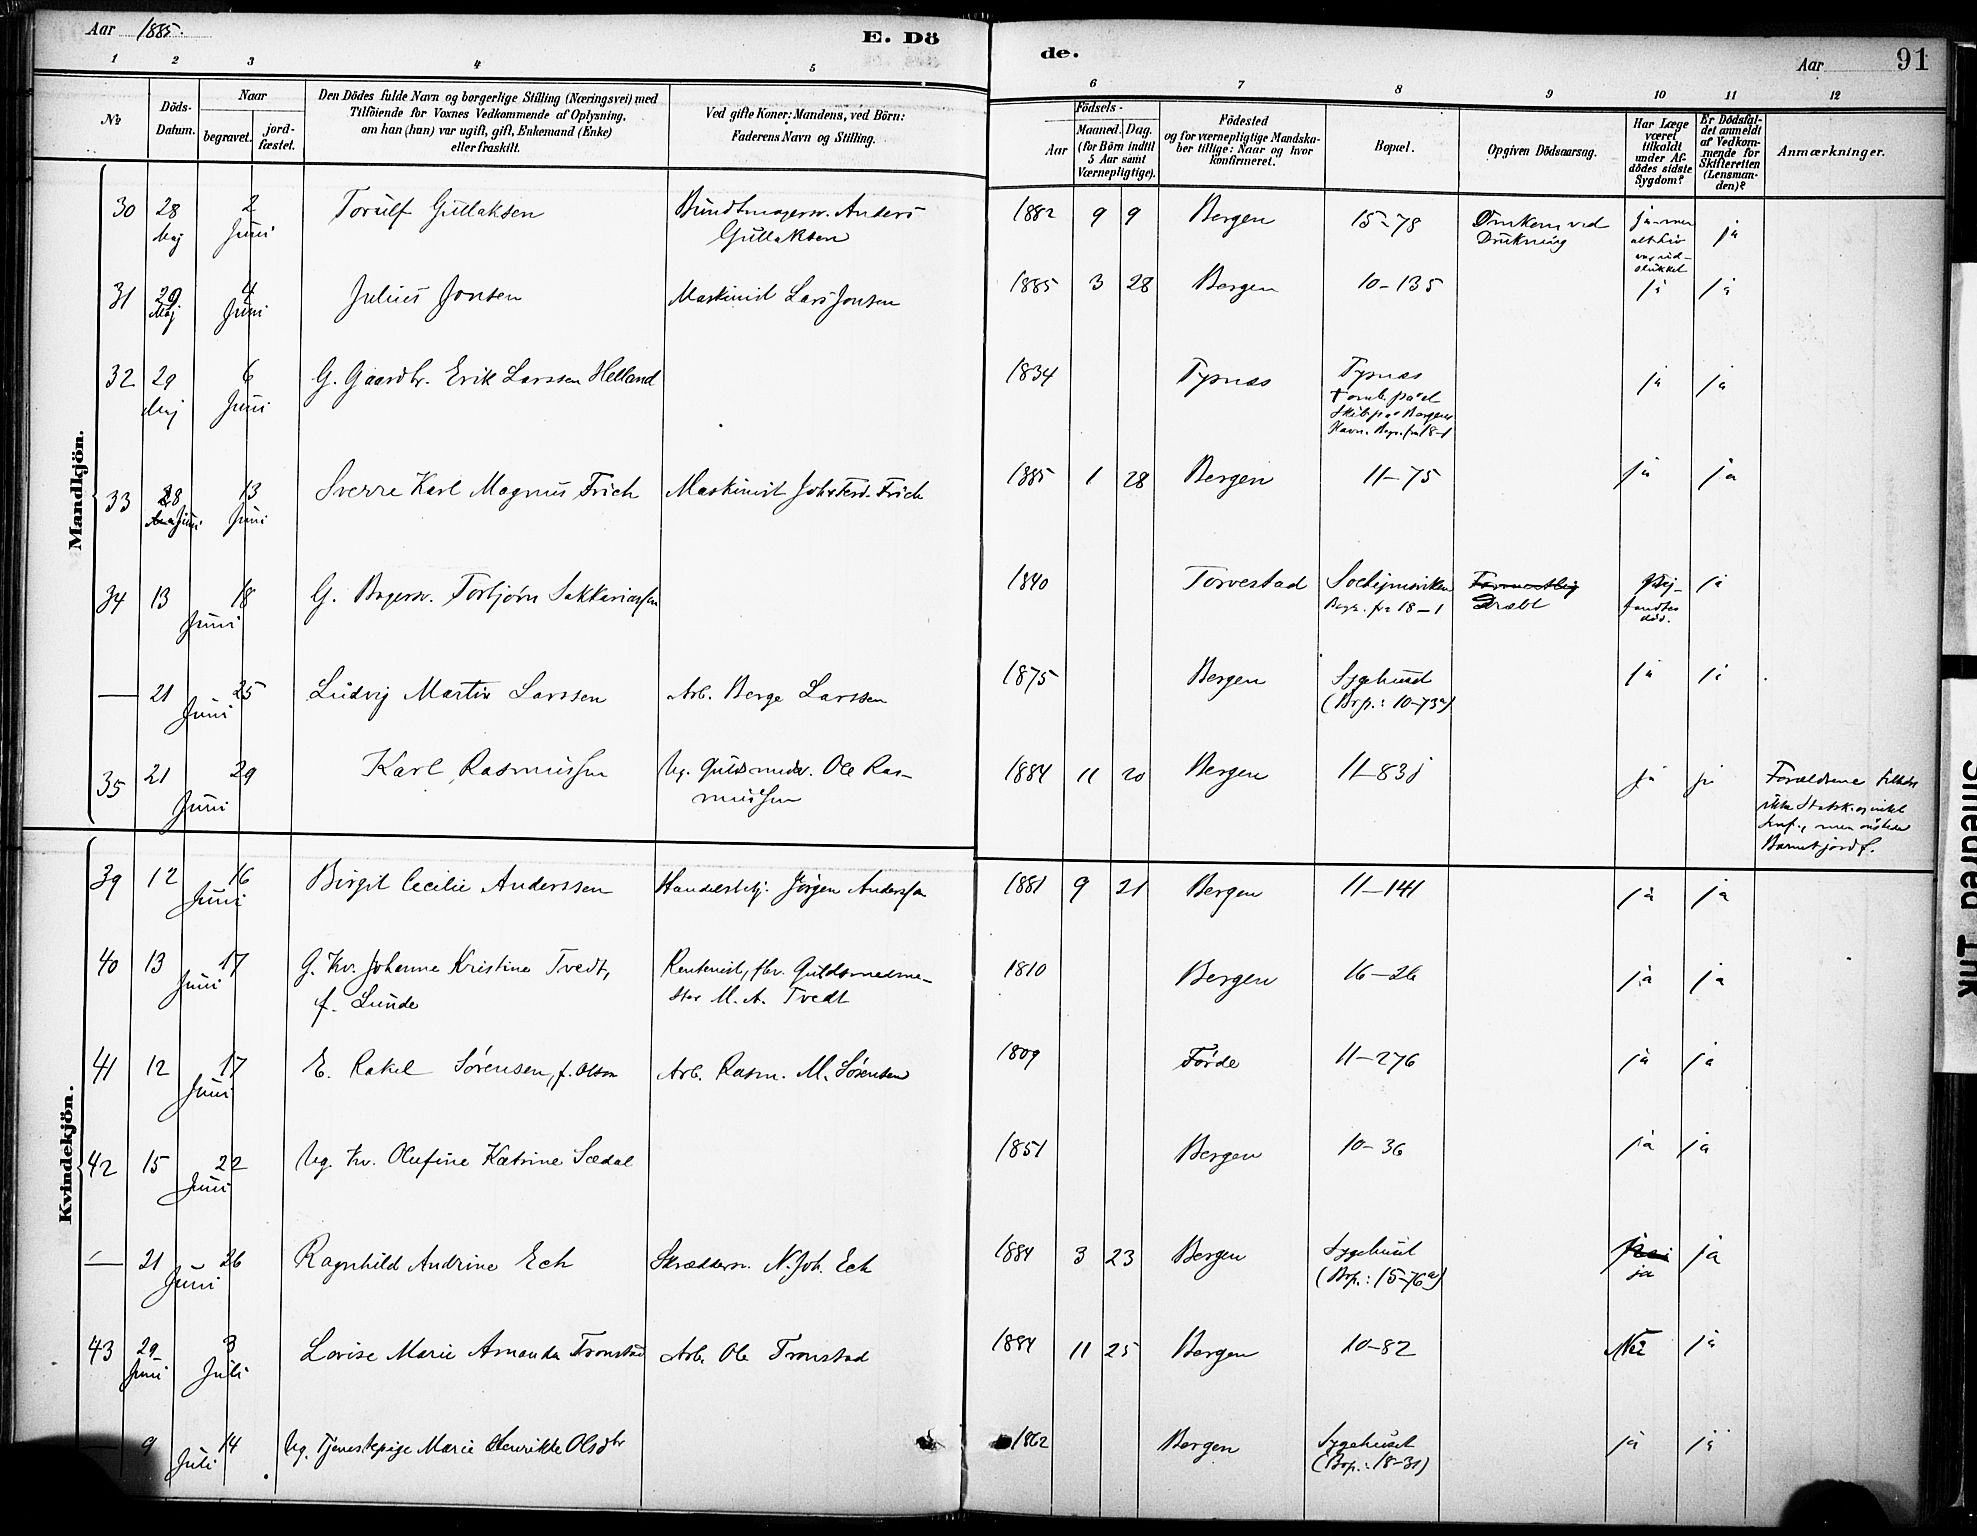 Aar 1885.
E. Dö
de.
Aar
91
1 2 3 4 5
6 7 8 9 10 11 12
No
Döds-
Datum.
Naar
begravet.
jord-
fæstet.
Den Dödes fulde Navn og borgerlige Stilling (Næringsvei) med
Tilföiende for Voxnes Vedkommende af Oplysning,
om han (hun) var ugift, gift, Enkemand (Enke)
eller fraskilt.
Ved gifte Koner: Mandens, ved Börn:
Faderens Navn og Stilling.
Födsels-
Aar
Maaned. Dag.
(for Börn indtil
5 Aar samt
Værnepligtige).
Födested
og for værnepligtige Mandska-
ber tillige: Naar og hvor
konfirmeret.
Bopæl.
Opgiven Dödsaarsag.
Har Læge
været
tilkaldt
under Af-
dödes sidste
Sygdom?
Er Dödsfal-
det anmeldt
af Vedkom-
mende for
Skifteretten
(Lensman-
den)?
Anmærkninger.
Mandkjön.
30 28 2 Torulf Gullaksen Bundtmagersv. Anders 1882 9 9 Bergen 15-78 ved ja-men ja
Maj Juni Gullaksen Drukning
31 29 4 Julius Jonsen Maskinist Lars Jonsen 1885 3 28 Bergen 10-135 ja ja
Maj Juni
32 29 6 G. Gaardbr. Erik Larssen Helland 1834 Tysnæs Tysnæs ja ja
Maj Juni
Havn. Begr. fra 18-1
33 28 13 Sverre Karl Magnus Frich Maskinist Joh. Ferd. Frich 1885 1 28 Bergen 11-75 ja ja
Juni Juni
34 13 18 G. Bagersv. Torbjørn Sakkariassen 1840 Torvestad Nej- ja
Juni Begr. fra 18-1 Dræbt fandtes
død.
— 21 25 Ludvig Martin Larssen Arb. Berge Larssen 1875 Bergen Sygehuset ja ja
Juni (Bop.: 10-73a)
35 21 29 Karl Rasmussen Ug. Guldsmedsv. Ole Ras- 1884 11 20 Bergen 11-83j ja ja Forældrene
Juni mussen
men ønskede
Kvindekjön.
39 12 16 Birgit Cecilie Anderssen Handelsbetj. Jörgen Anderssen 1881 9 21 Bergen 11-141 ja ja
Juni
40 13 17 G. Kv. Johanne Kristine Tvedt, Rentenist, fhv. Guldsmedme- 1810 Bergen 16-26 ja ja
Juni f. Lunde ster M. A. Tvedt
41 12 17 E. Rakel Sørensen, f. Olsen Arb. Rasm. M. Sørensen 1809 Førde 11-276 ja ja
Juni
42 15 22 Ug. Kv. Olufine Katrine Sædal 1851 Bergen 10-36 ja ja
Juni
— 21 26 Ragnhild Andrine Eck Skræddersv. N. Joh. Eck 1884 3 23 Bergen Sygehuset ja
Juni (Bop.: 15-76a) ja
43 29 3 Lovise Marie Amanda Tronstad Arb. Ole Tronstad 1884 11 25 Bergen 10-82 Nei ja
Juni Juli
— 9 14 Ug. Tjenestepige Marie Henrikke Olsdtr 1862 Bergen Sygehuset ja ja
Juli (Bop.: 18-31)